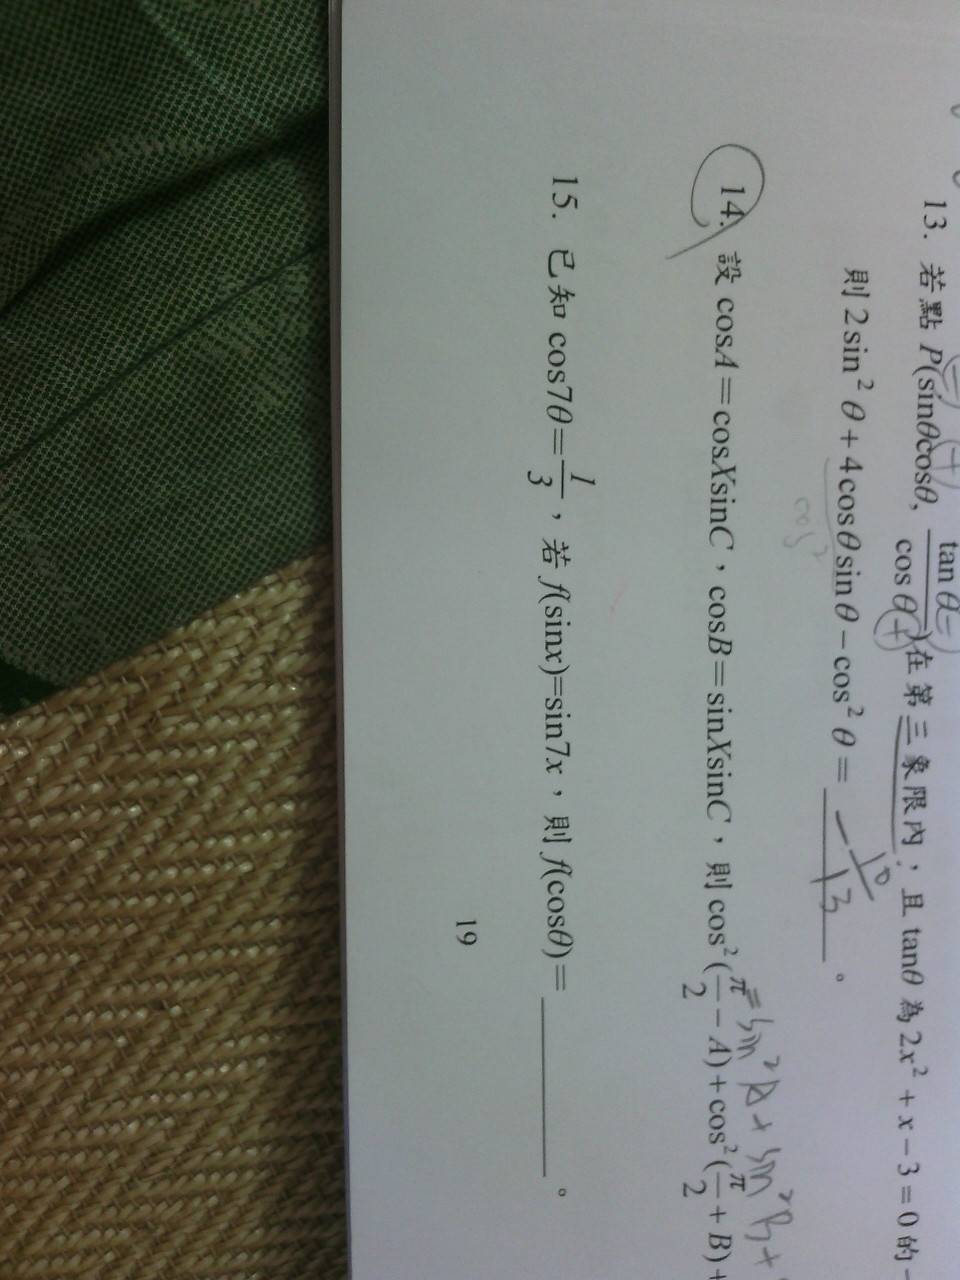 13. 若點 P(sinθcosθ, tan θ/cos θ)在第三象限內，且 tanθ 為 2x² + x − 3 = 0 的
則 2sin² θ + 4cosθsinθ − cos² θ = −10/13 。
cos²
= sin²A + sin²B +
14. 設 cosA＝cosXsinC，cosB＝sinXsinC，則 cos²(π/2 − A) + cos²(π/2 + B) +
15. 已知 cos7θ＝1/3，若 f(sinx)=sin7x，則 f(cosθ)＝ 。
19